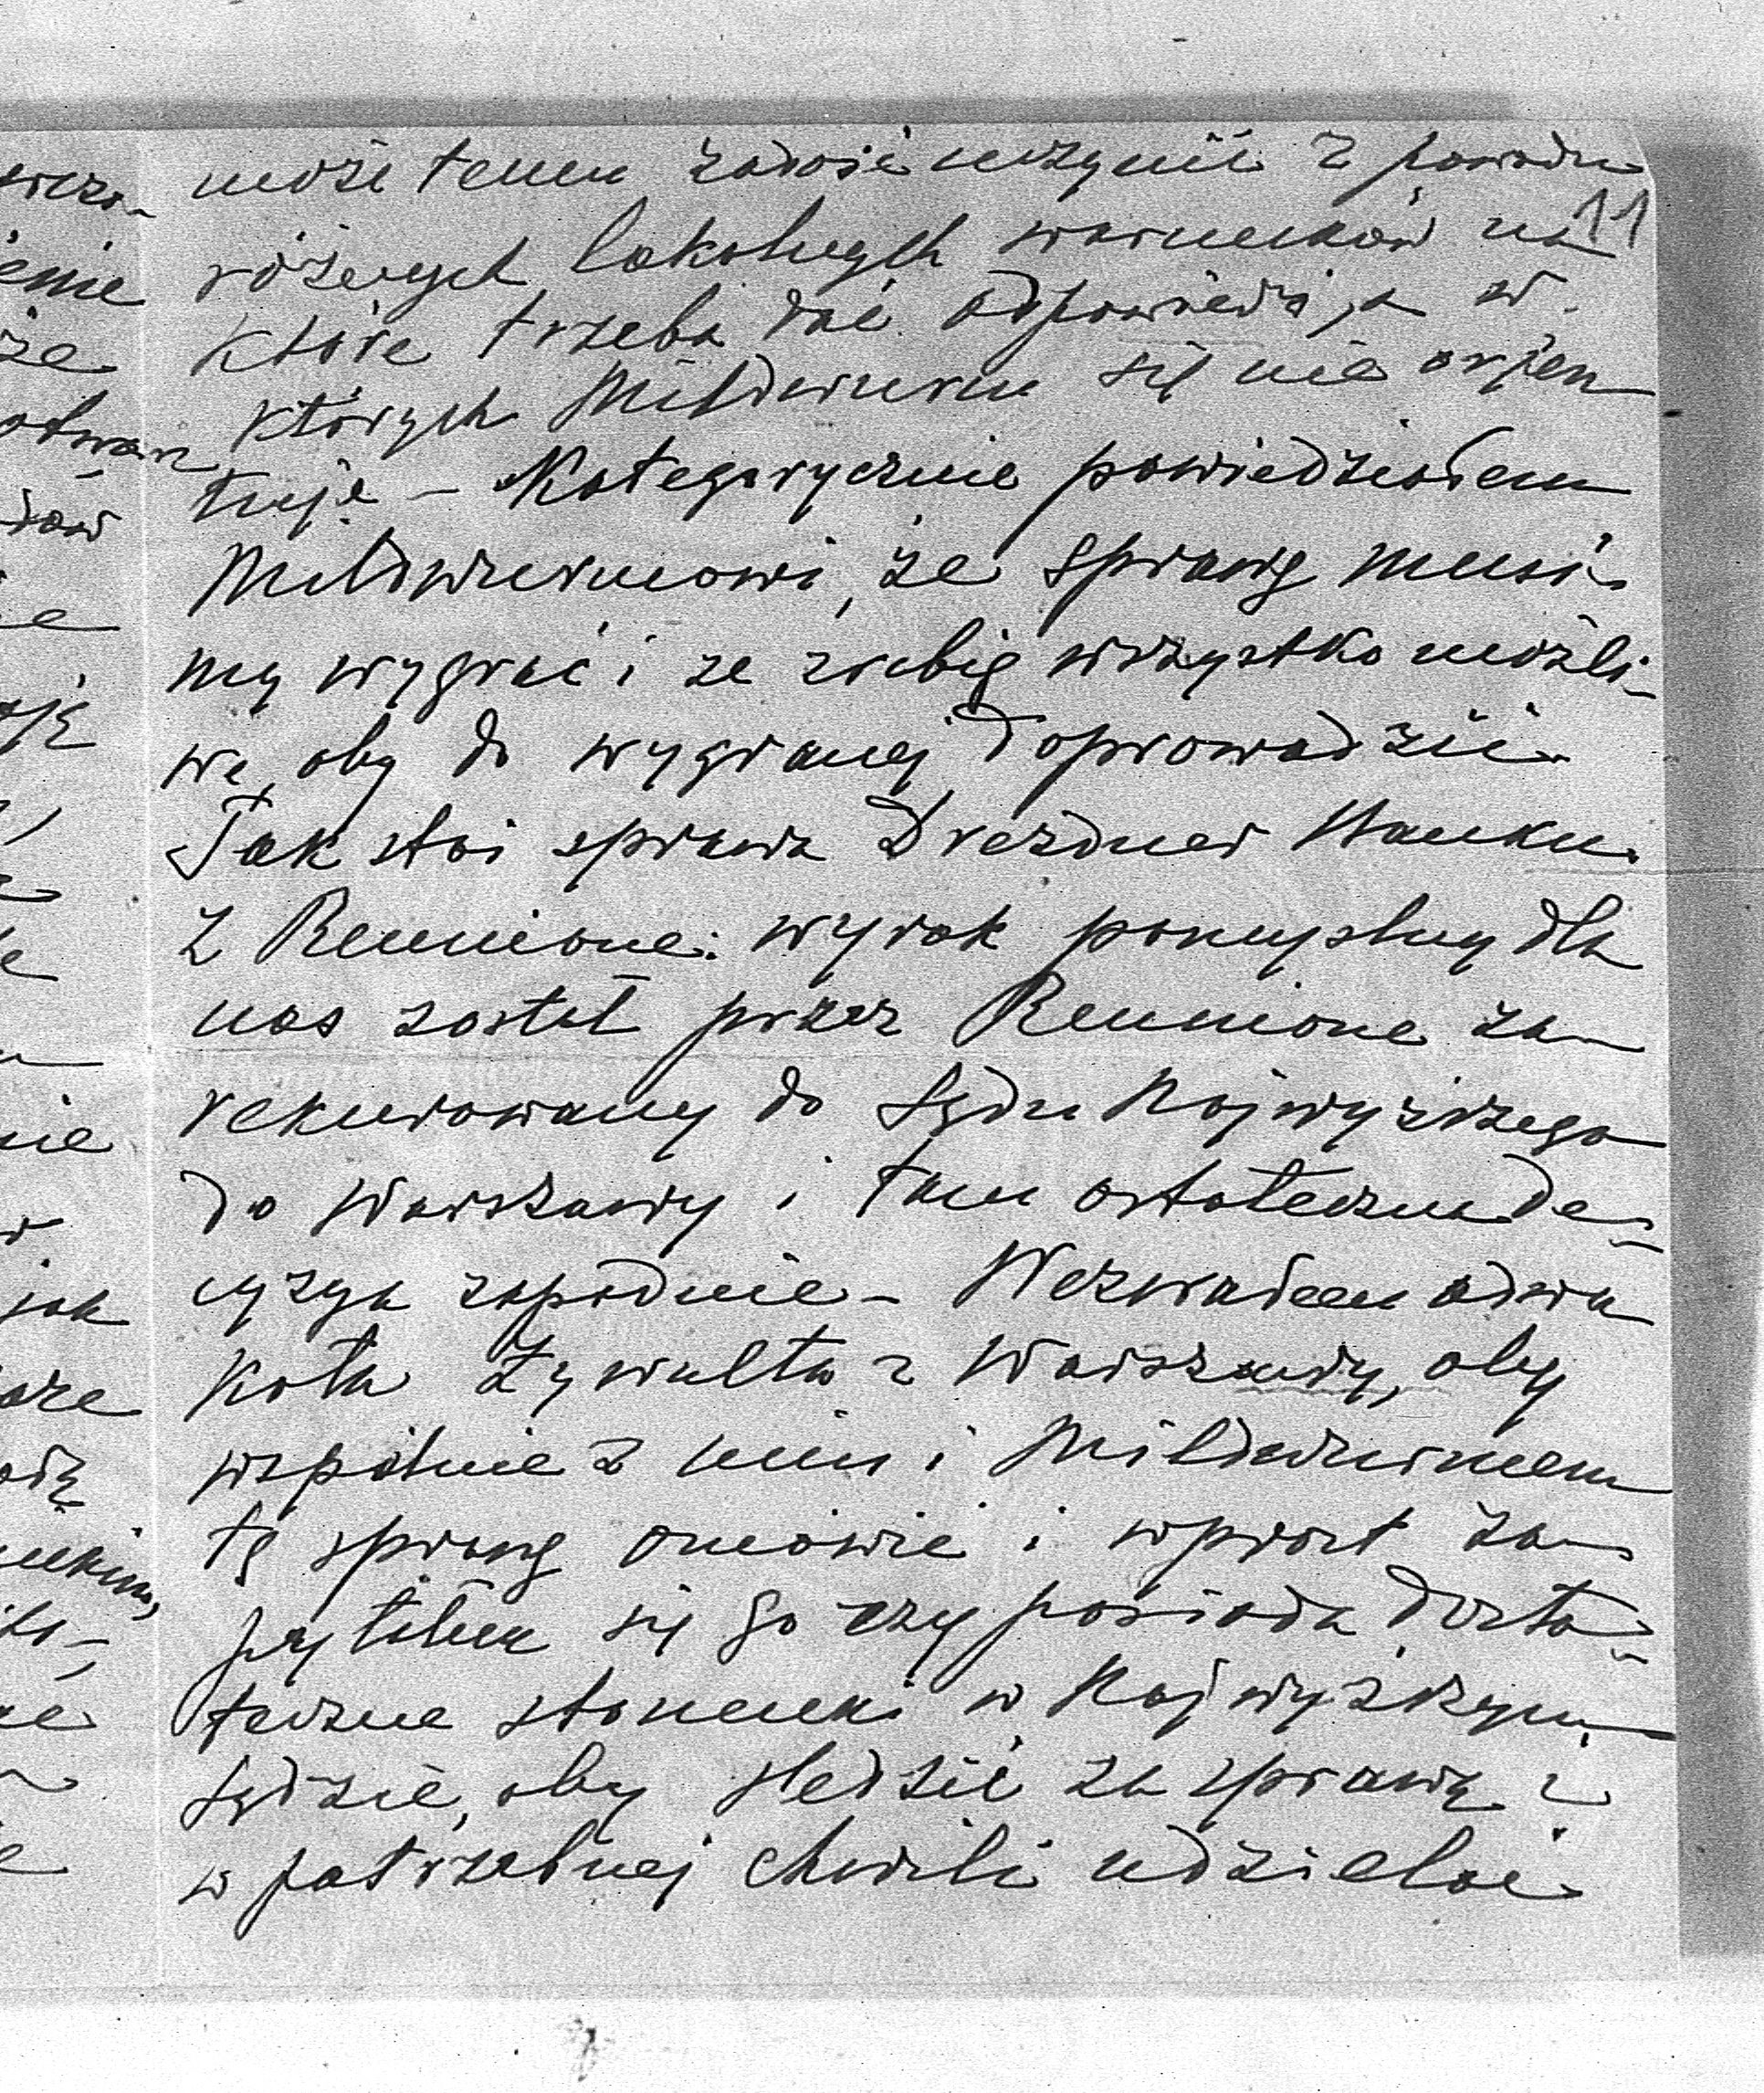 może temu zadość uczynić z powodu
11
różnych lokalnych warunków na
które trzeba dać odpowiedź, a w
których Mildwurm się nie orjen
tuje – Kategorycznie powiedziałem
Mildwurmowi, że sprawę musi-
my wygrać i że zrobię wszystko możli-
we, aby do wygranej doprowadzić.
Tak stoi sprawa Drezdner Banku.
Z Reunione: wyrok pomyślny dla
nas został przez Reunione za-
rekurowany do Sądu Najwyższego
do Warszawy i tam ostateczna de-
cyzya zapadnie – Wezwałem adwo
kata Zywulta z Warszawy, aby
wspólnie z nim i Mildwurmem
tę sprawę omówić i wprost za-
pytałem się go czy posiada dosta-
teczne stosunki w Najwyższym
Sądzie, aby śledzić za sprawą i
w potrzebnej chwili udzielać